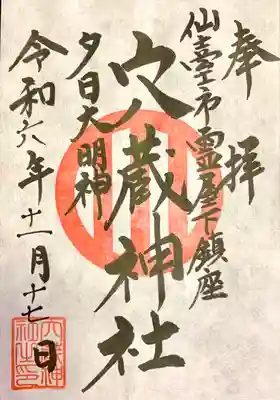 奉拝
仙臺市霊屋下鎮座
穴蔵神社
夕日大明神
令和六年十一月十七日
穴蔵神
社之印